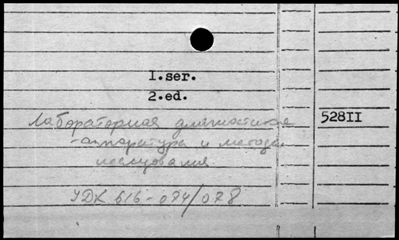 1.ser.
2.ed.
Лабораторная диагностика 528II
- аппаратура и методы
исследования
УДК 616-074/078